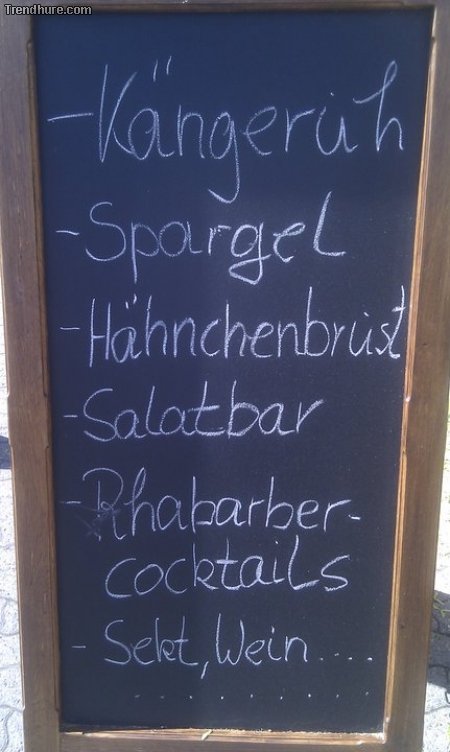 Trendhure.com
- Kängerüh
- Spargel
- Hähnchenbrust
- Salatbar
- Rhabarber-
cocktails
- Sekt, Wein....
..........